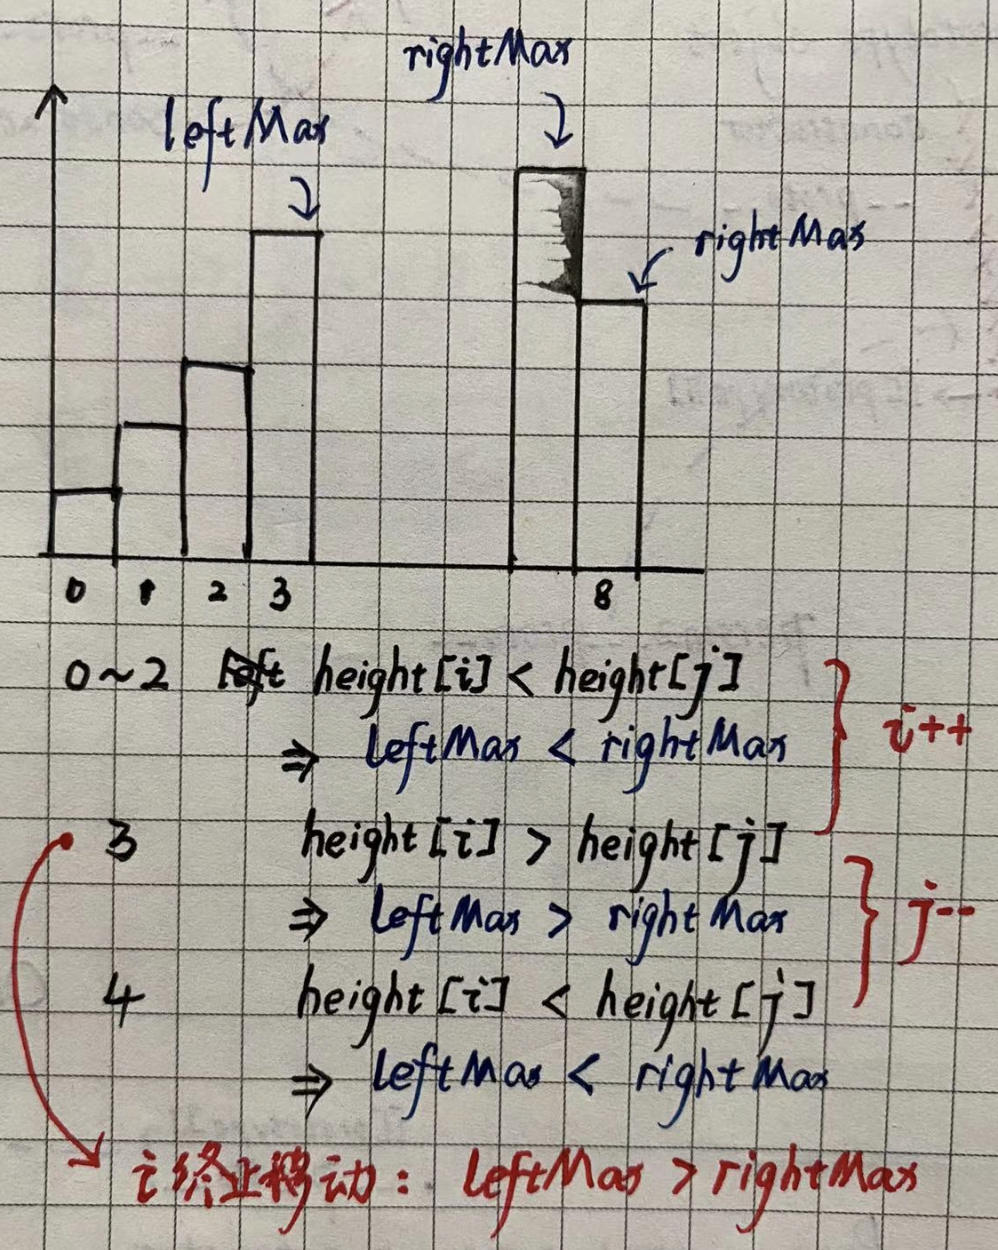 rightMax
leftMax
rightMax
0 1 2 3 8
0~2 height[i] < height[j]
⇒ leftMax < rightMax
i++
3 height[i] > height[j]
⇒ leftMax > rightMax
j--
4 height[i] < height[j]
⇒ leftMax < rightMax
i终止移动: leftMax > rightMax